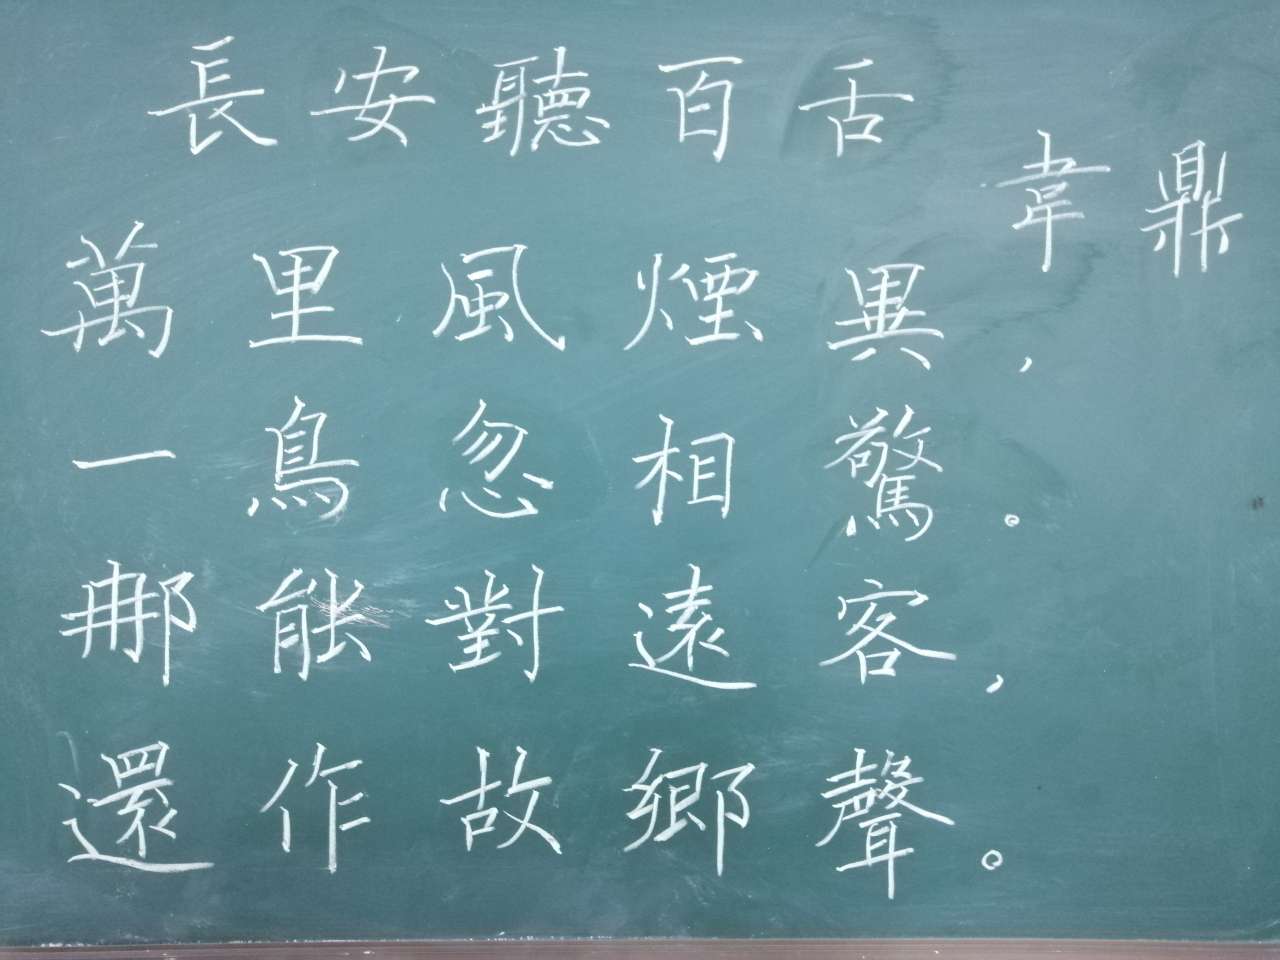 長安聽百舌
韋鼎
萬里風煙異，
一鳥忽相驚。
那能對遠客，
還作故鄉聲。